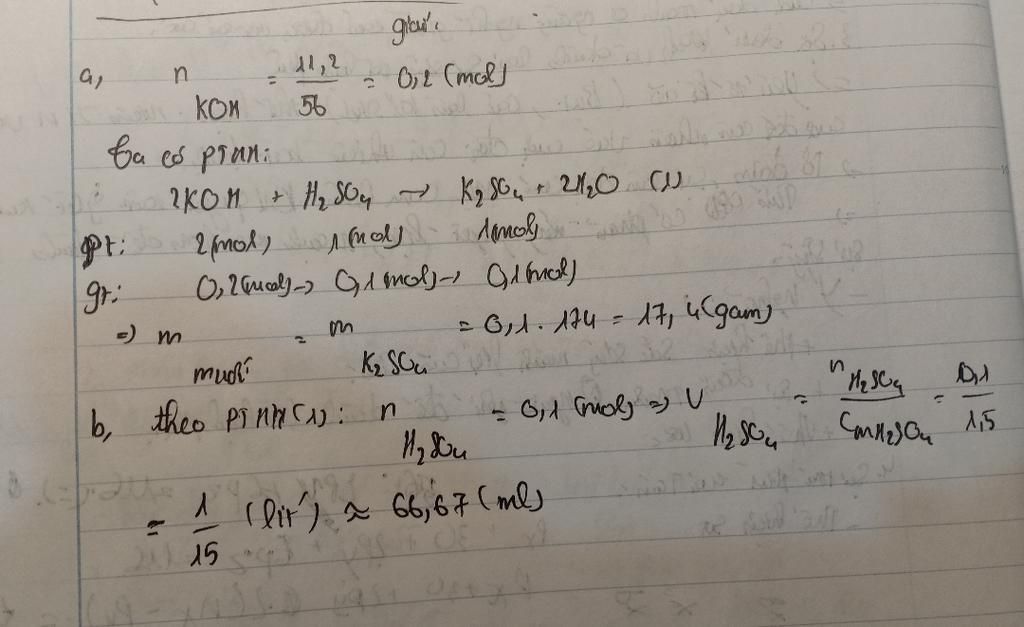 giải:
a, n KOH = 11,2/56 = 0,2 (mol)
ta có PTHH:
2KOH + H₂SO₄ → K₂SO₄ + 2H₂O (1)
pt: 2(mol) 1(mol) 1(mol)
gt: 0,2(mol) → 0,1(mol) → 0,1(mol)
=> m muối = m K₂SO₄ = 0,1 . 174 = 17,4(gam)
b, theo PTHH(1): n H₂SO₄ = 0,1 (mol) => V H₂SO₄ = n H₂SO₄/CmH₂SO₄ = 0,1/1,5
= 1/15 (lít) ≈ 66,67 (ml)